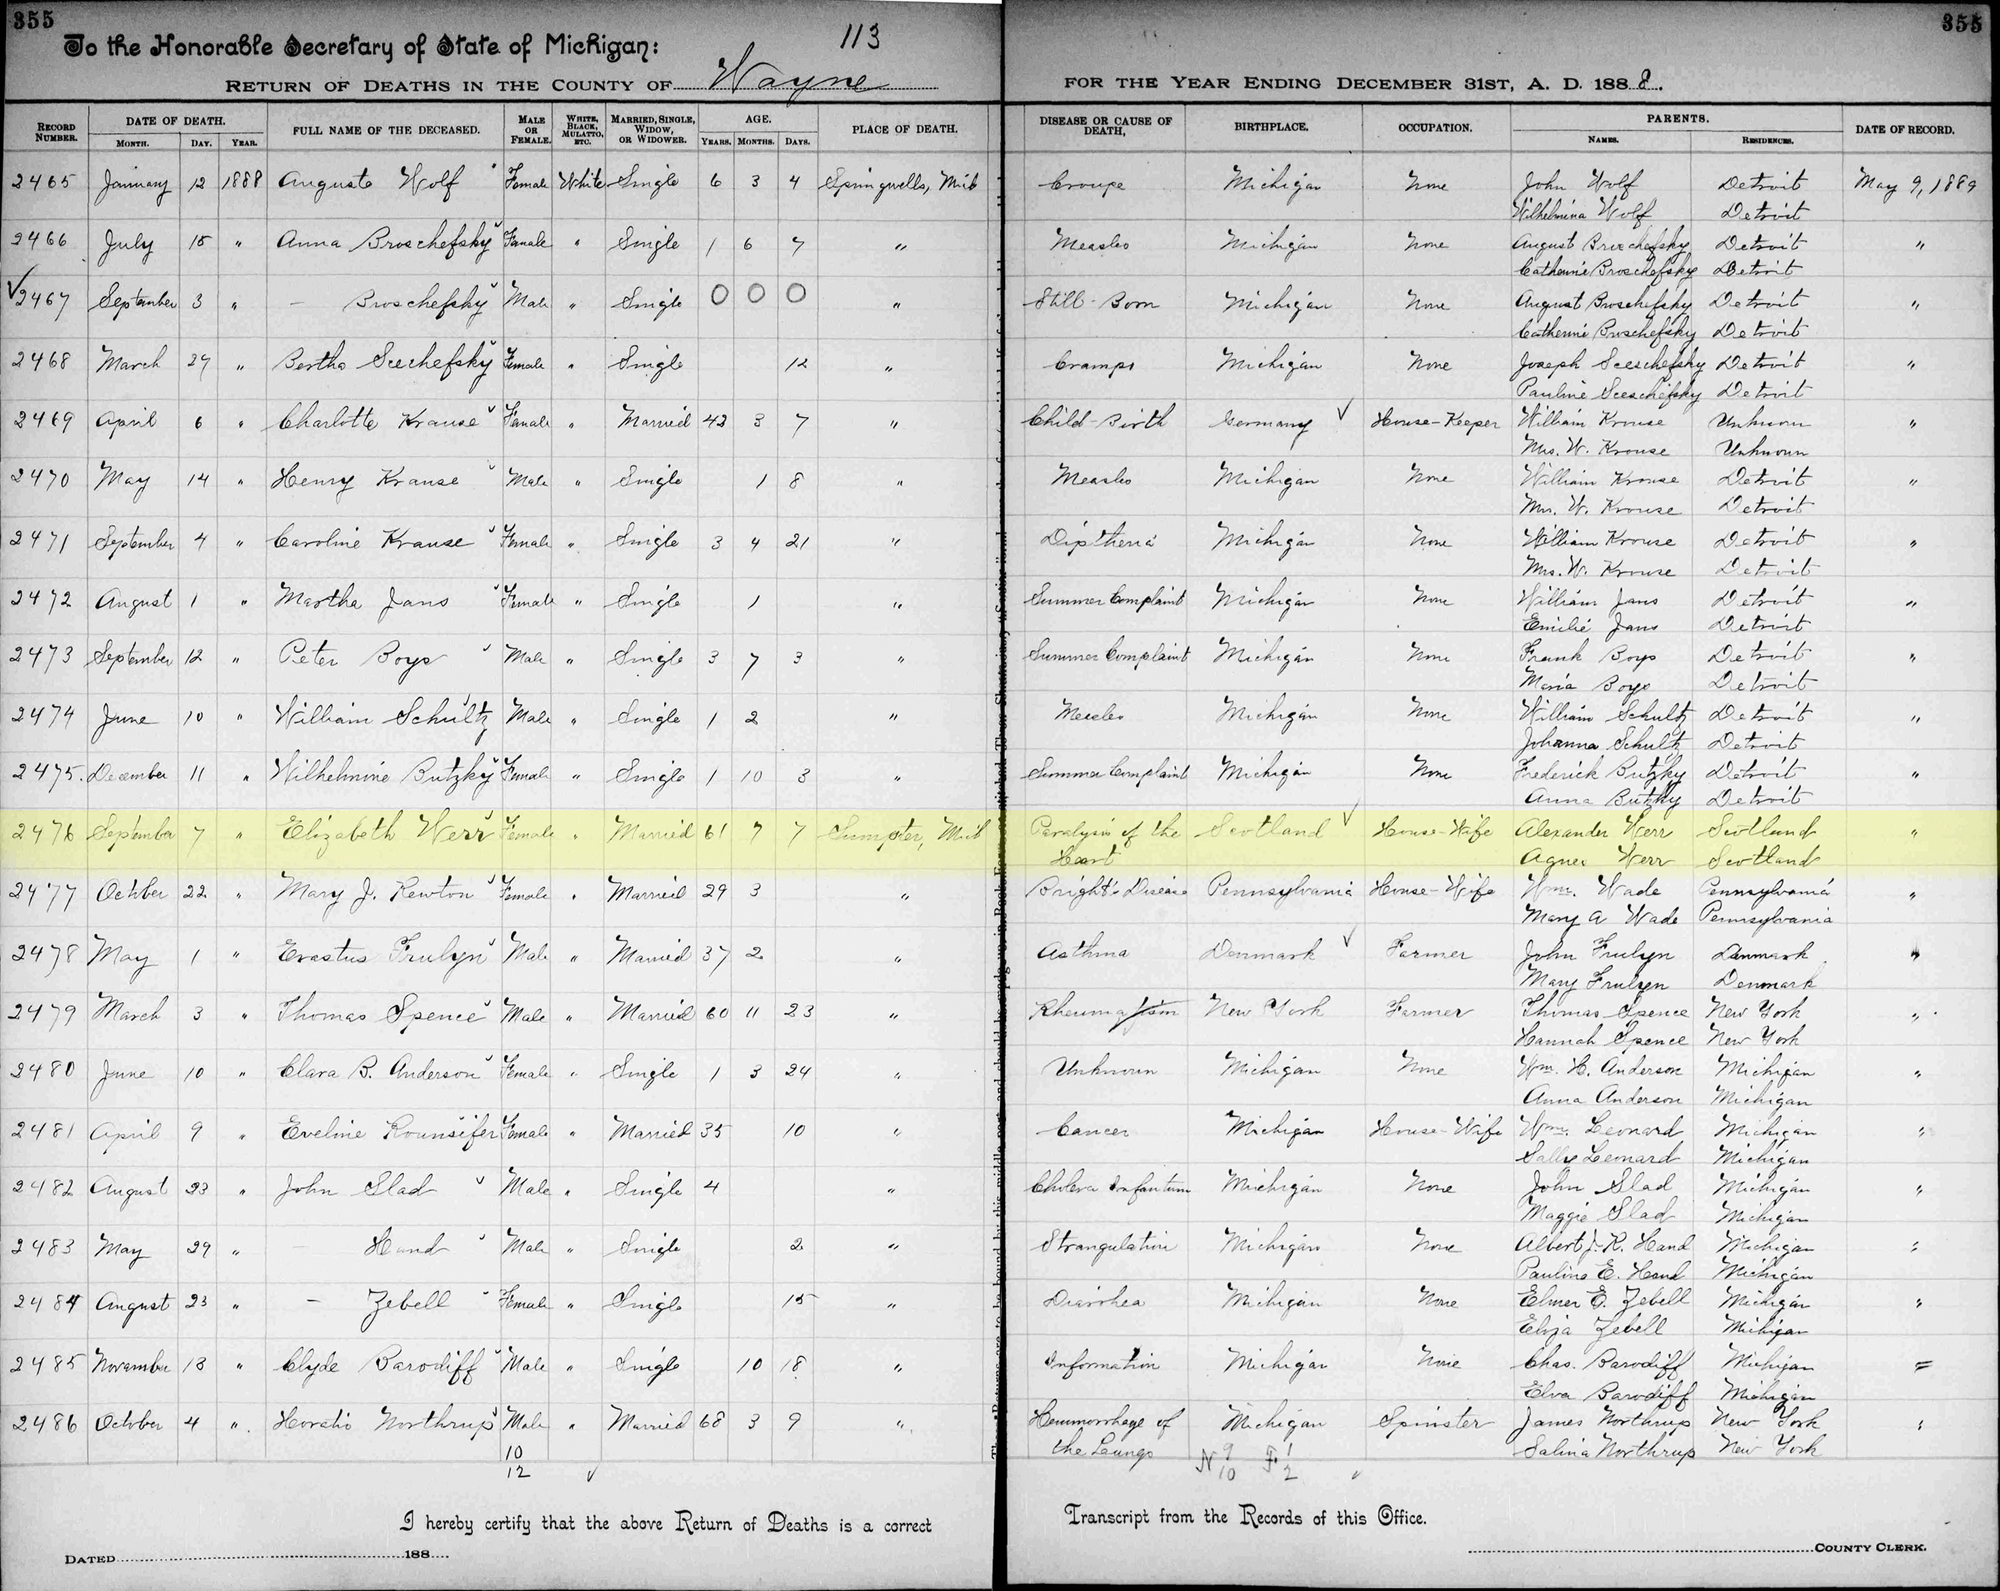 355
355
To the Honorable Secretary of State of Michigan:
113
RETURN OF DEATHS IN THE COUNTY OF Wayne FOR THE YEAR ENDING DECEMBER 31ST, A. D. 1888.
RECORD NUMBER. DATE OF DEATH. MONTH. DAY. YEAR. FULL NAME OF THE DECEASED. MALE OR FEMALE. WHITE, BLACK, MULATTO, ETC. MARRIED, SINGLE, WIDOW, OR WIDOWER. AGE. YEARS. MONTHS. DAYS. PLACE OF DEATH. DISEASE OR CAUSE OF DEATH, BIRTHPLACE. OCCUPATION. PARENTS. NAMES. RESIDENCES. DATE OF RECORD.
2465 January 12 1888 Auguste Wolf Female White Single 6 3 4 Springwells, Mich Croupe Michigan None John Wolf Detroit May 9, 1889
Wilhelmina Wolf Detroit
2466 July 15 " Anna Broschefsky Female " Single 1 6 7 " Measles Michigan None August Broschefsky Detroit "
Catherine Broschefsky Detroit
2467 September 3 " — Broschefsky Male " Single 0 0 0 " Still-Born Michigan None August Broschefsky Detroit "
Catherine Broschefsky Detroit
2468 March 27 " Bertha Seechefsky Female " Single 12 " Cramps Michigan None Joseph Seeschefsky Detroit "
Pauline Seeschefsky Detroit
2469 April 6 " Charlotte Krause Female " Married 43 3 7 " Child-Birth Germany House-Keeper William Krouse Unknown "
Mrs. W. Krouse Unknown
2470 May 14 " Henry Krause Male " Single 1 8 " Measles Michigan None William Krouse Detroit "
Mrs. W. Krouse Detroit
2471 September 4 " Caroline Krause Female " Single 3 4 21 " Diptheria Michigan None William Krouse Detroit "
Mrs. W. Krouse Detroit
2472 August 1 " Martha Jans Female " Single 1 " Summer Complaint Michigan None William Jans Detroit "
Emilie Jans Detroit
2473 September 12 " Peter Boys Male " Single 3 7 3 " Summer Complaint Michigan None Frank Boys Detroit "
Maria Boys Detroit
2474 June 10 " William Schultz Male " Single 1 2 " Measles Michigan None William Schultz Detroit "
Johanna Schultz Detroit
2475. December 11 " Wilhelmine Butzky Female " Single 1 10 3 " Summer Complaint Michigan None Frederick Butzky Detroit "
Anna Butzky Detroit
2476 September 7 " Elizabeth Werr Female " Married 61 7 7 Sumpter, Mich Paralysis of the Scotland House-Wife Alexander Werr Scotland "
Heart Agnes Werr Scotland
2477 October 22 " Mary J. Newton Female " Married 29 3 " Bright's Disease Pennsylvania House-Wife Wm. Wade Pennsylvania "
Mary A Wade Pennsylvania
2478 May 1 " Erastus Frulyn Male " Married 37 2 " Asthma Denmark Farmer John Frulyn Denmark "
Mary Frulyn Denmark
2479 March 3 " Thomas Spence Male " Married 60 11 23 " Rheumatism New York Farmer Thomas Spence New York "
Hannah Spence New York
2480 June 10 " Clara B. Anderson Female " Single 1 3 24 " Unknown Michigan None Wm. H. Anderson Michigan "
Anna Anderson Michigan
2481 April 9 " Eveline Rounsifer Female " Married 35 10 " Cancer Michigan House-Wife Wm. Leonard Michigan "
Sally Leonard Michigan
2482 August 23 " John Slad Male " Single 4 " Cholera Infantum Michigan None John Slad Michigan "
Maggie Slad Michigan
2483 May 29 " — Hand Male " Single 2 " Strangulation Michigan None Albert J. R. Hand Michigan "
Pauline E. Hand Michigan
2484 August 23 " — Zebell Female " Single 15 " Diarrhea Michigan None Elmer E. Zebell Michigan "
Eliza Zebell Michigan
2485 November 13 " Clyde Barodiff Male " Single 10 18 " Information Michigan None Chas. Barodiff Michigan "
Elva Barodiff Michigan
2486 October 4 " Horatio Northrup Male " Married 68 3 9 " Hemmorrhage of Michigan Spinster James Northrup New York "
the Lungs Salina Northrup New York
10
12
N 9 F 1
10 2
I hereby certify that the above Return of Deaths is a correct Transcript from the Records of this Office.
DATED 188 COUNTY CLERK.